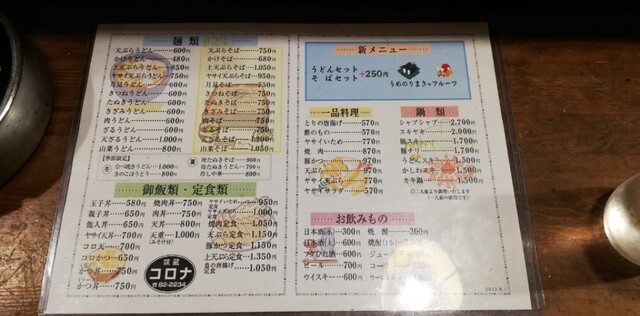 麺類
天ぷらうどん……600円
かけうどん……480円
上天ぷらうどん……850円
ヤサイ天ぷらうどん……750円
月見うどん……600円
きつねうどん……600円
たぬきうどん……600円
きざみうどん……600円
肉うどん……600円
ざるうどん……600円
天ざるうどん……1,000円
山菜うどん……800円
天ぷらそば……750円
かけそば……680円
上天ぷらそば……1,050円
ヤサイ天ぷらそば……950円
月見そば……750円
きつねそば……750円
たぬきそば……750円
きざみそば……750円
肉そば……750円
750円
1,200円
山菜そば……950円
【季節限定】
なべ焼きうどん……1,000円
きのこごはん
夏
冷たぬきそば……900円
冷たぬきうどん……700円
冷し中華……800円
御飯類・定食類
玉子丼……580円
親子丼……650円
他人丼……650円
ヤサイ天丼……700円
コロ天……700円
コロかつ……650円
かつ丼……750円
焼肉丼……750円
肉丼……750円
天丼……800円
天重……1,000円
(みそ汁付)
ヤサイいため定食……950円
焼肉定食……1,050円
天ぷら定食……1,050円
豚かつ定食……1,050円
上天ぷら定食……1,350円
鳥の唐揚げ定食……1,050円
味蔵
コロナ
☎02-2234
新メニュー
うどんセット
そばセット
+250円
うめのりまき+フルーツ
一品料理
とりの唐揚げ……570円
酢のもの……570円
ヤサイいため……770円
焼肉……870円
豚かつ……970円
天ぷら……970円
ヤサイ天ぷら……570円
ヤサイサラダ……570円
鍋類
シャブシャブ……2,700円
スキヤキ……2,000円
豚スキ……1,700円
豚チリ……1,700円
うどんスキ……1,500円
かしわスキ……1,500円
カキ鍋……1,500円
◎二人前より調理いたします
お飲みもの
日本酒(小)……300円
日本酒(大)……600円
フグひれ酒……600円
ビール……700円
ウイスキー……600円
焼酎……360円
2022.8.1